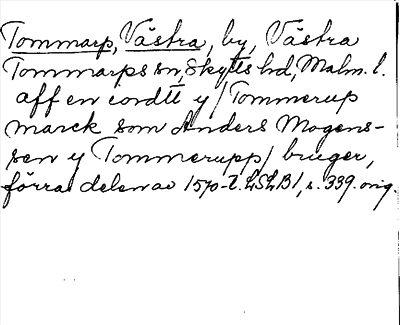 Tommarp, Västra, by, Västra
Tommarps sn, Skytts hd, Malm. l.
aff en iordtt y / Tommerup
marck som Anders Mogens-
sen y Tommerupp / bruger,
förra delen av 1570-t. LSLB1, s. 339. orig.